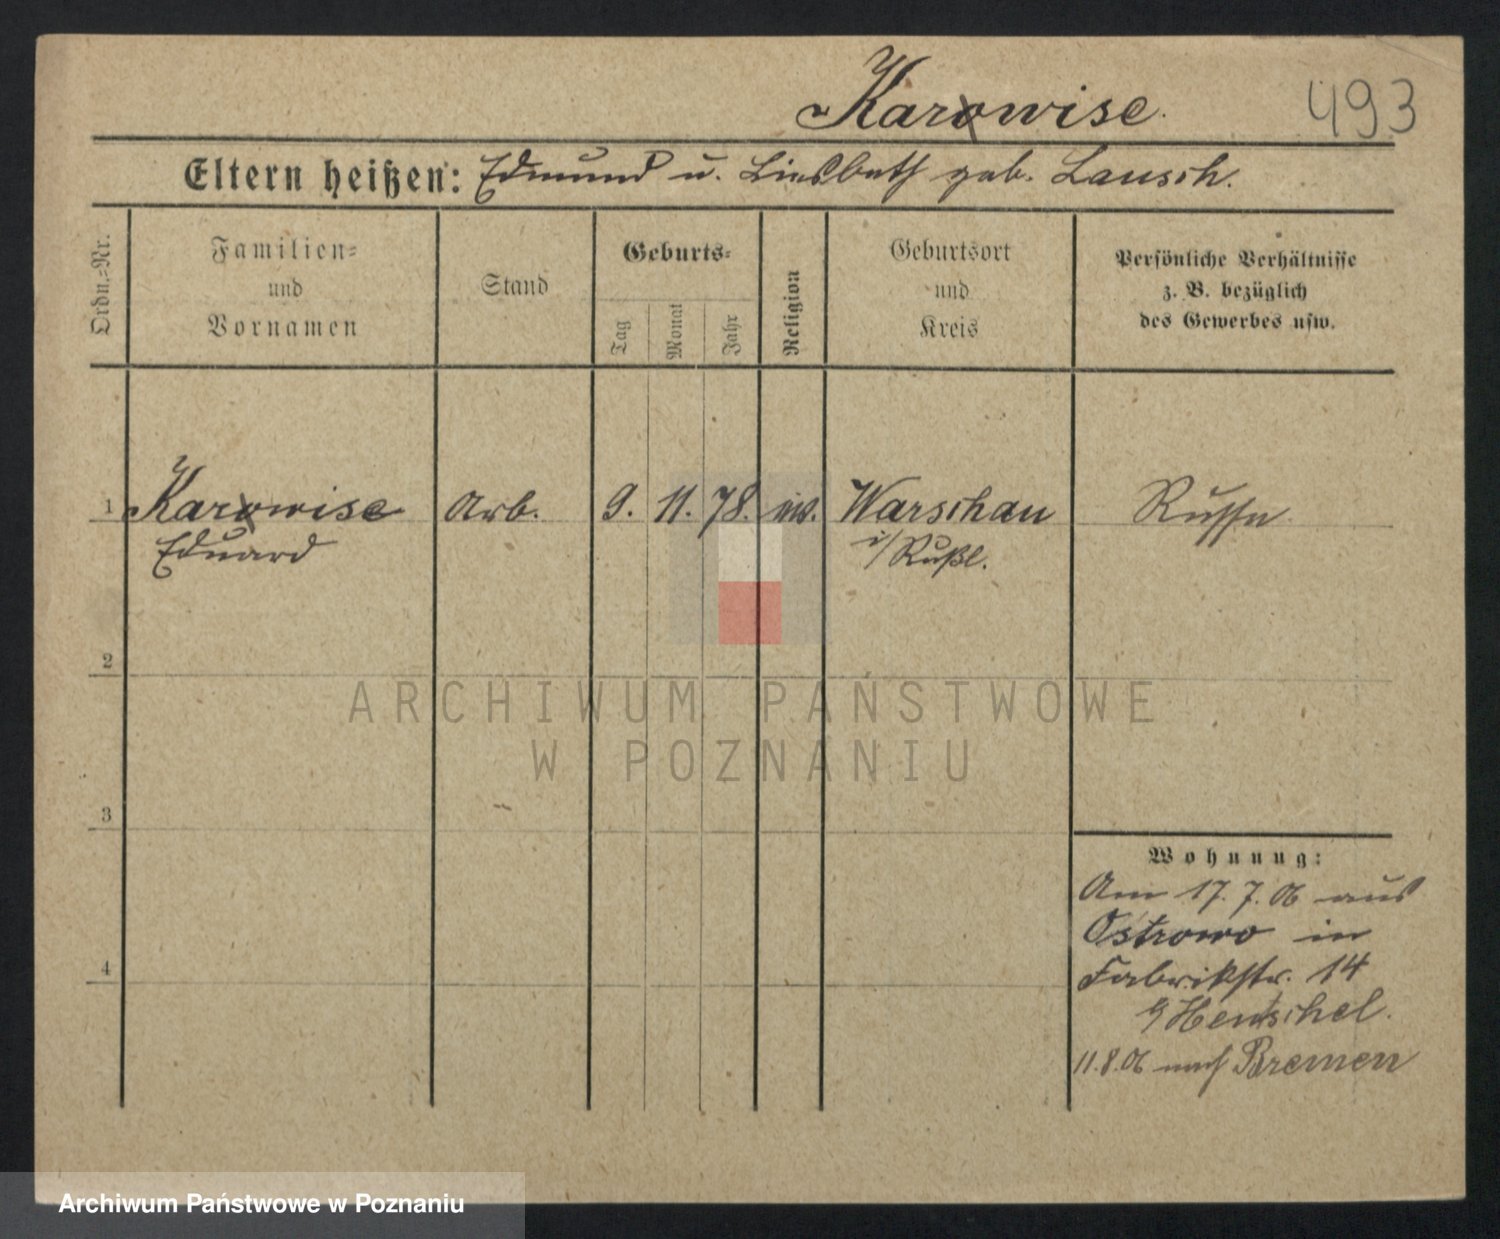 Karowise.
493
Eltern heißen: Edmund u. Liesbeth geb. Lausch.
Ordn.-Nr.
Familien-
und
Vornamen
Stand
Geburts-
Tag
Monat
Jahr
Religion
Geburtsort
und
Kreis
Persönliche Verhältnisse
z. B. bezüglich
des Gewerbes usw.
1 Karowise Arb. 9. 11. 78. Warschau Russe
Eduard i/Rußl.
2
ARCHIWUM PAŃSTWOWE
W POZNANIU
3
Wohnung:
Am 17.7.06 aus
Ostrowo in
Fabrikstr. 14
4
Hentschel.
11.8.06 nach Bremen
Archiwum Państwowe w Poznaniu